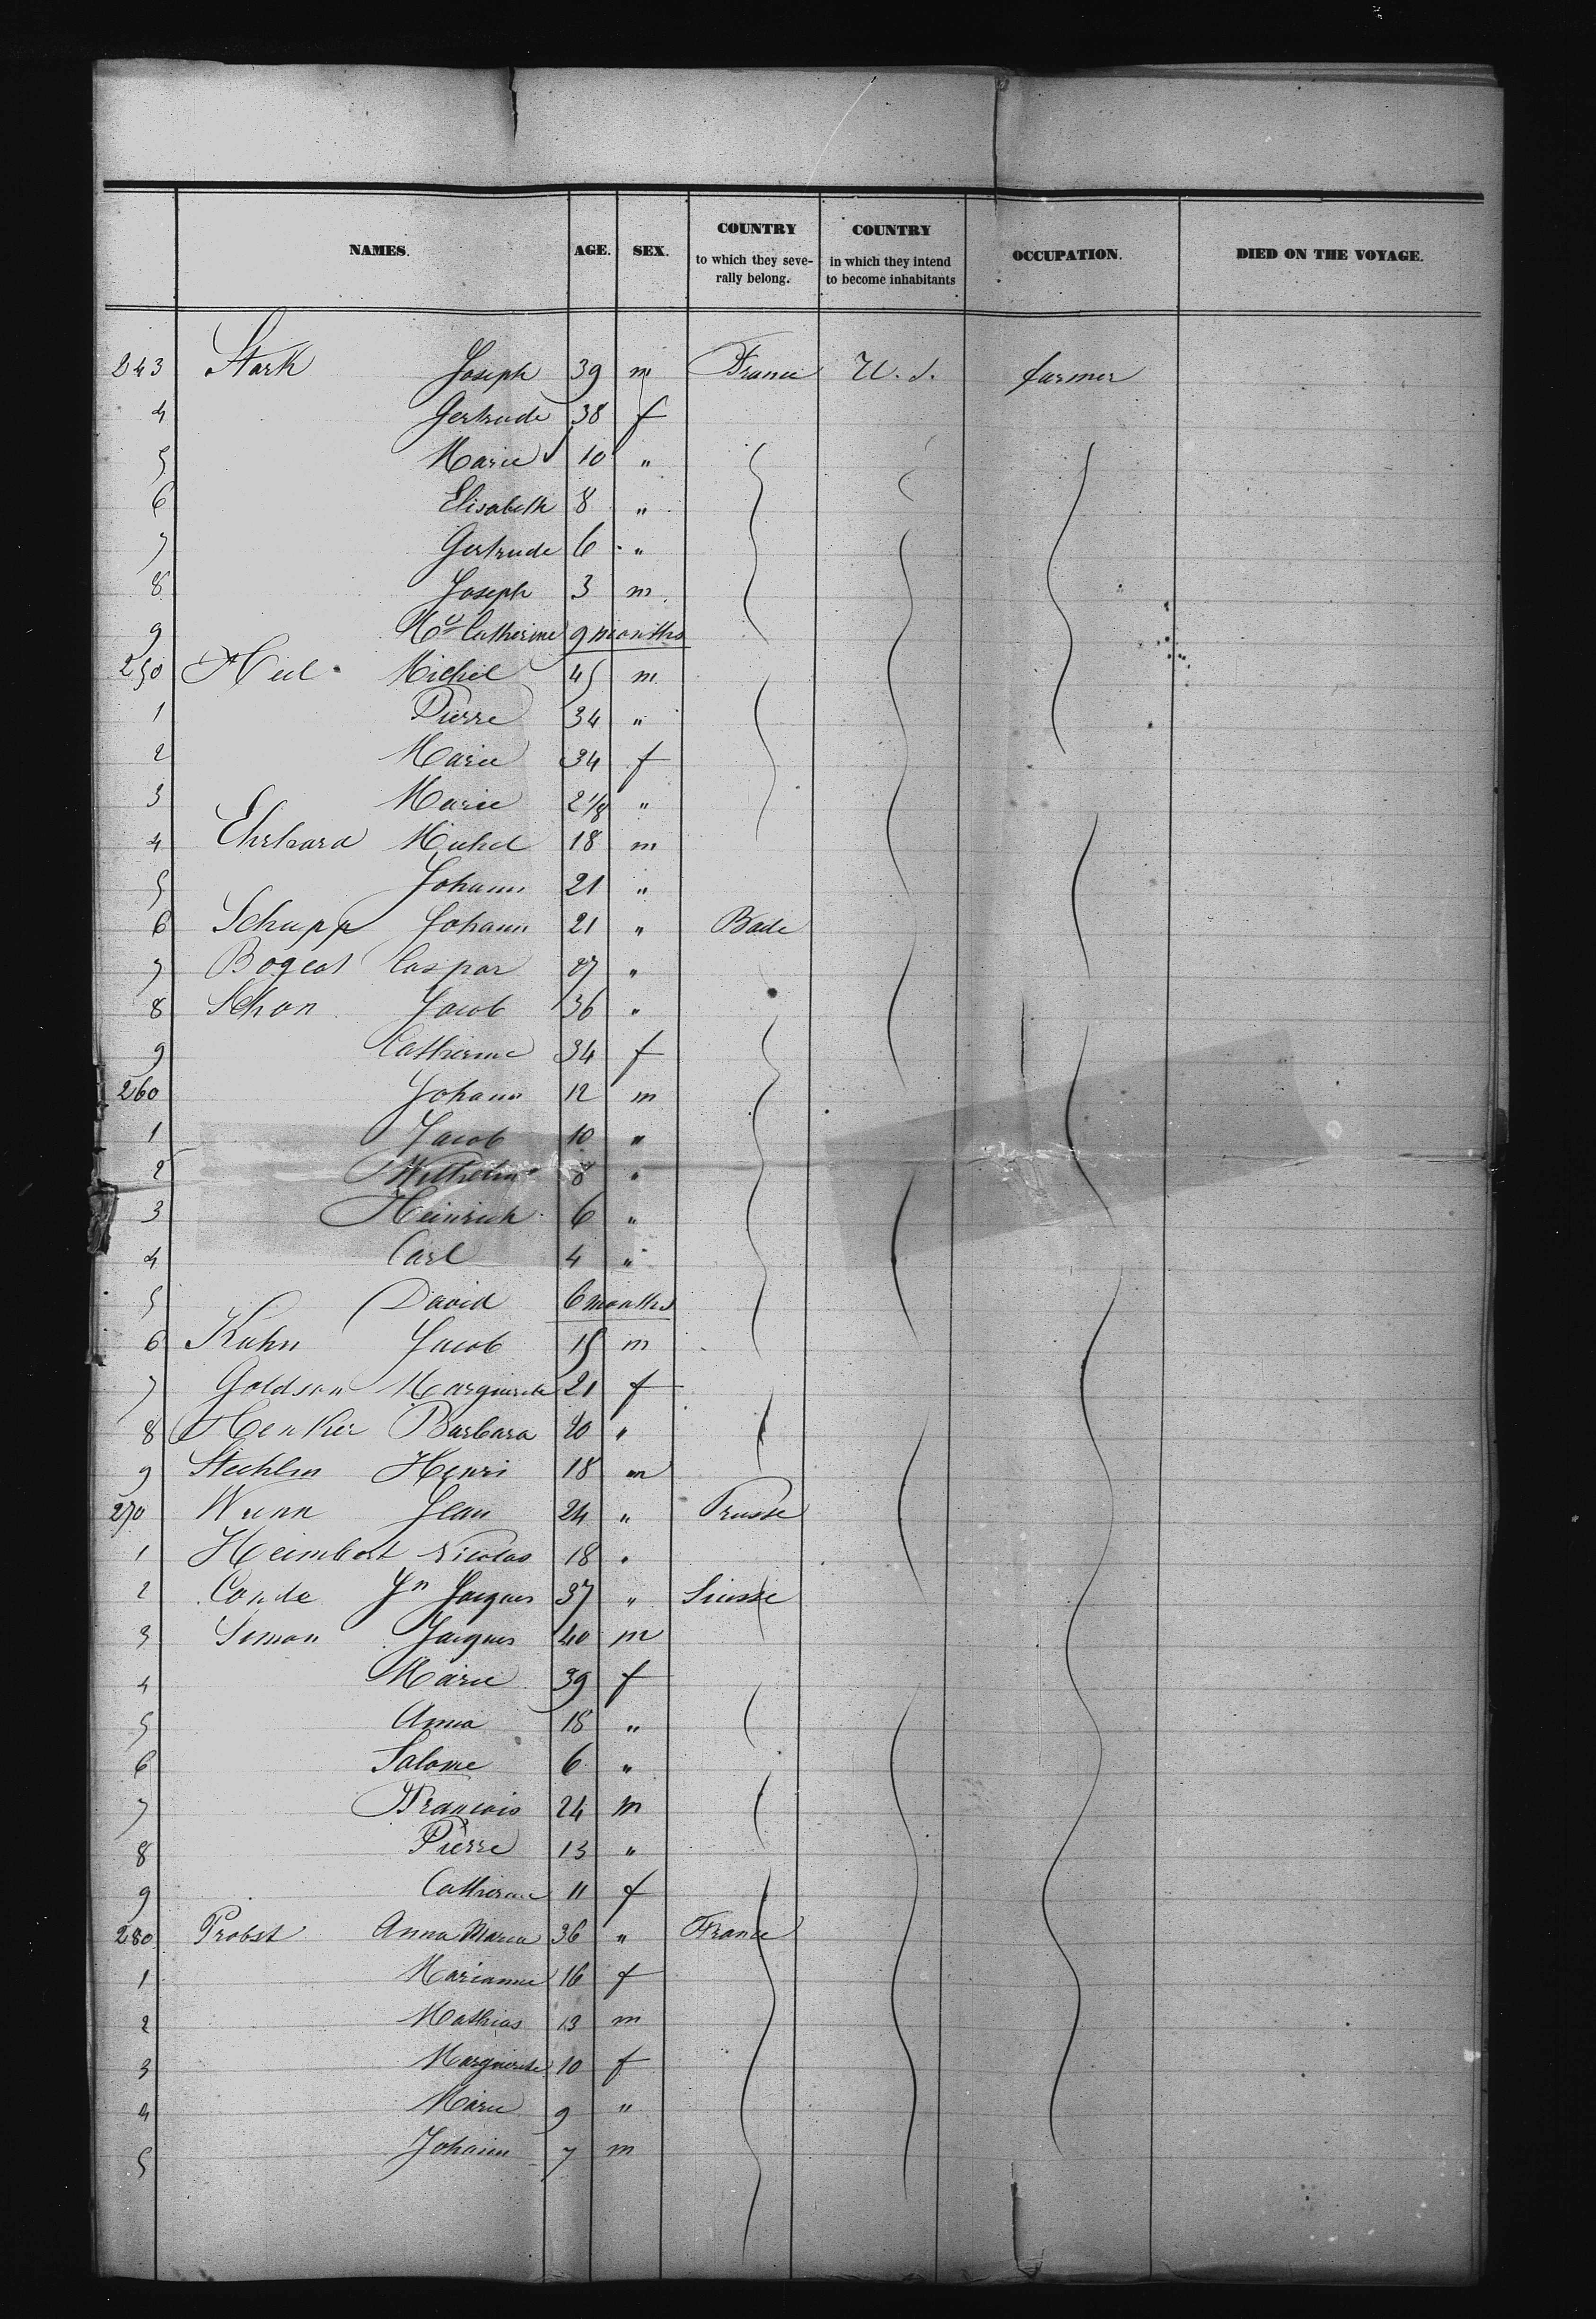 NAMES. AGE. SEX. COUNTRY to which they severally belong. COUNTRY in which they intend to become inhabitants OCCUPATION. DIED ON THE VOYAGE.
243 Stark Joseph 39 m France U.S. farmer
4 Gertrude 38 f
5 Marie 10 "
6 Elisabeth 8 "
7 Gertrude 6 "
8 Joseph 3 m
9 Catherine 9 months
250 Michel 45 m
1 Pierre 34 "
2 Marie 34 f
3 Marie 2 "
4 Ehrhard Michel 18 m
5 Johann 21 "
6 Schupp Johann 21 " Bade
7 Bogeat Caspar 27 "
8 Schon Jacob 36 "
9 Catherine 34 f
260 Johann 12 m
1 Jacob 10 "
2 Wilhelm 8 "
3 Heinrich 6 "
4 Carl 4 "
5 David 6 months
6 Kuhn Jacob 15 m
7 Goldson Marguerite 21 f
8 Henker Barbara 20 "
9 Henri 18 m
270 Jean 24 " Prusse
1 Heimbort Nicolas 18 "
2 Conde Jn Jacques 37 " Suisse
3 Simon Jacques 40 m
4 Marie 39 f
5 Anna 18 "
6 Salome 6 "
7 Francois 24 m
8 Pierre 13 "
9 Catherine 11 f
280 Probst Anna Maria 36 " France
1 Marianne 16 f
2 Mathias 13 m
3 Marguerite 10 f
4 Marie 9 "
5 Johann 7 m